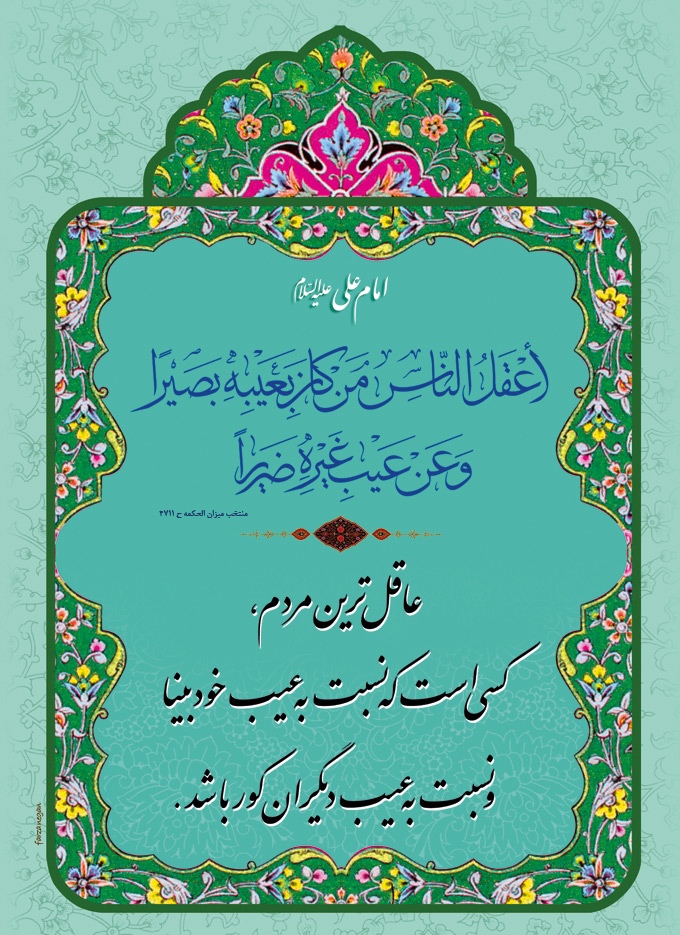 امام علی علیه‌السّلام
أعْقَلُ النَّاسِ مَن كانَ بِعَيبِهِ بَصيرًا
وَعَنْ عَيْبِ غَيْرِهِ ضَريراً
منتخب میزان الحکمه ح ۴۷۱۱
عاقل ترین مردم،
کسی است که نسبت به عیب خود بینا
و نسبت به عیب دیگران کور باشد.
farzanegan